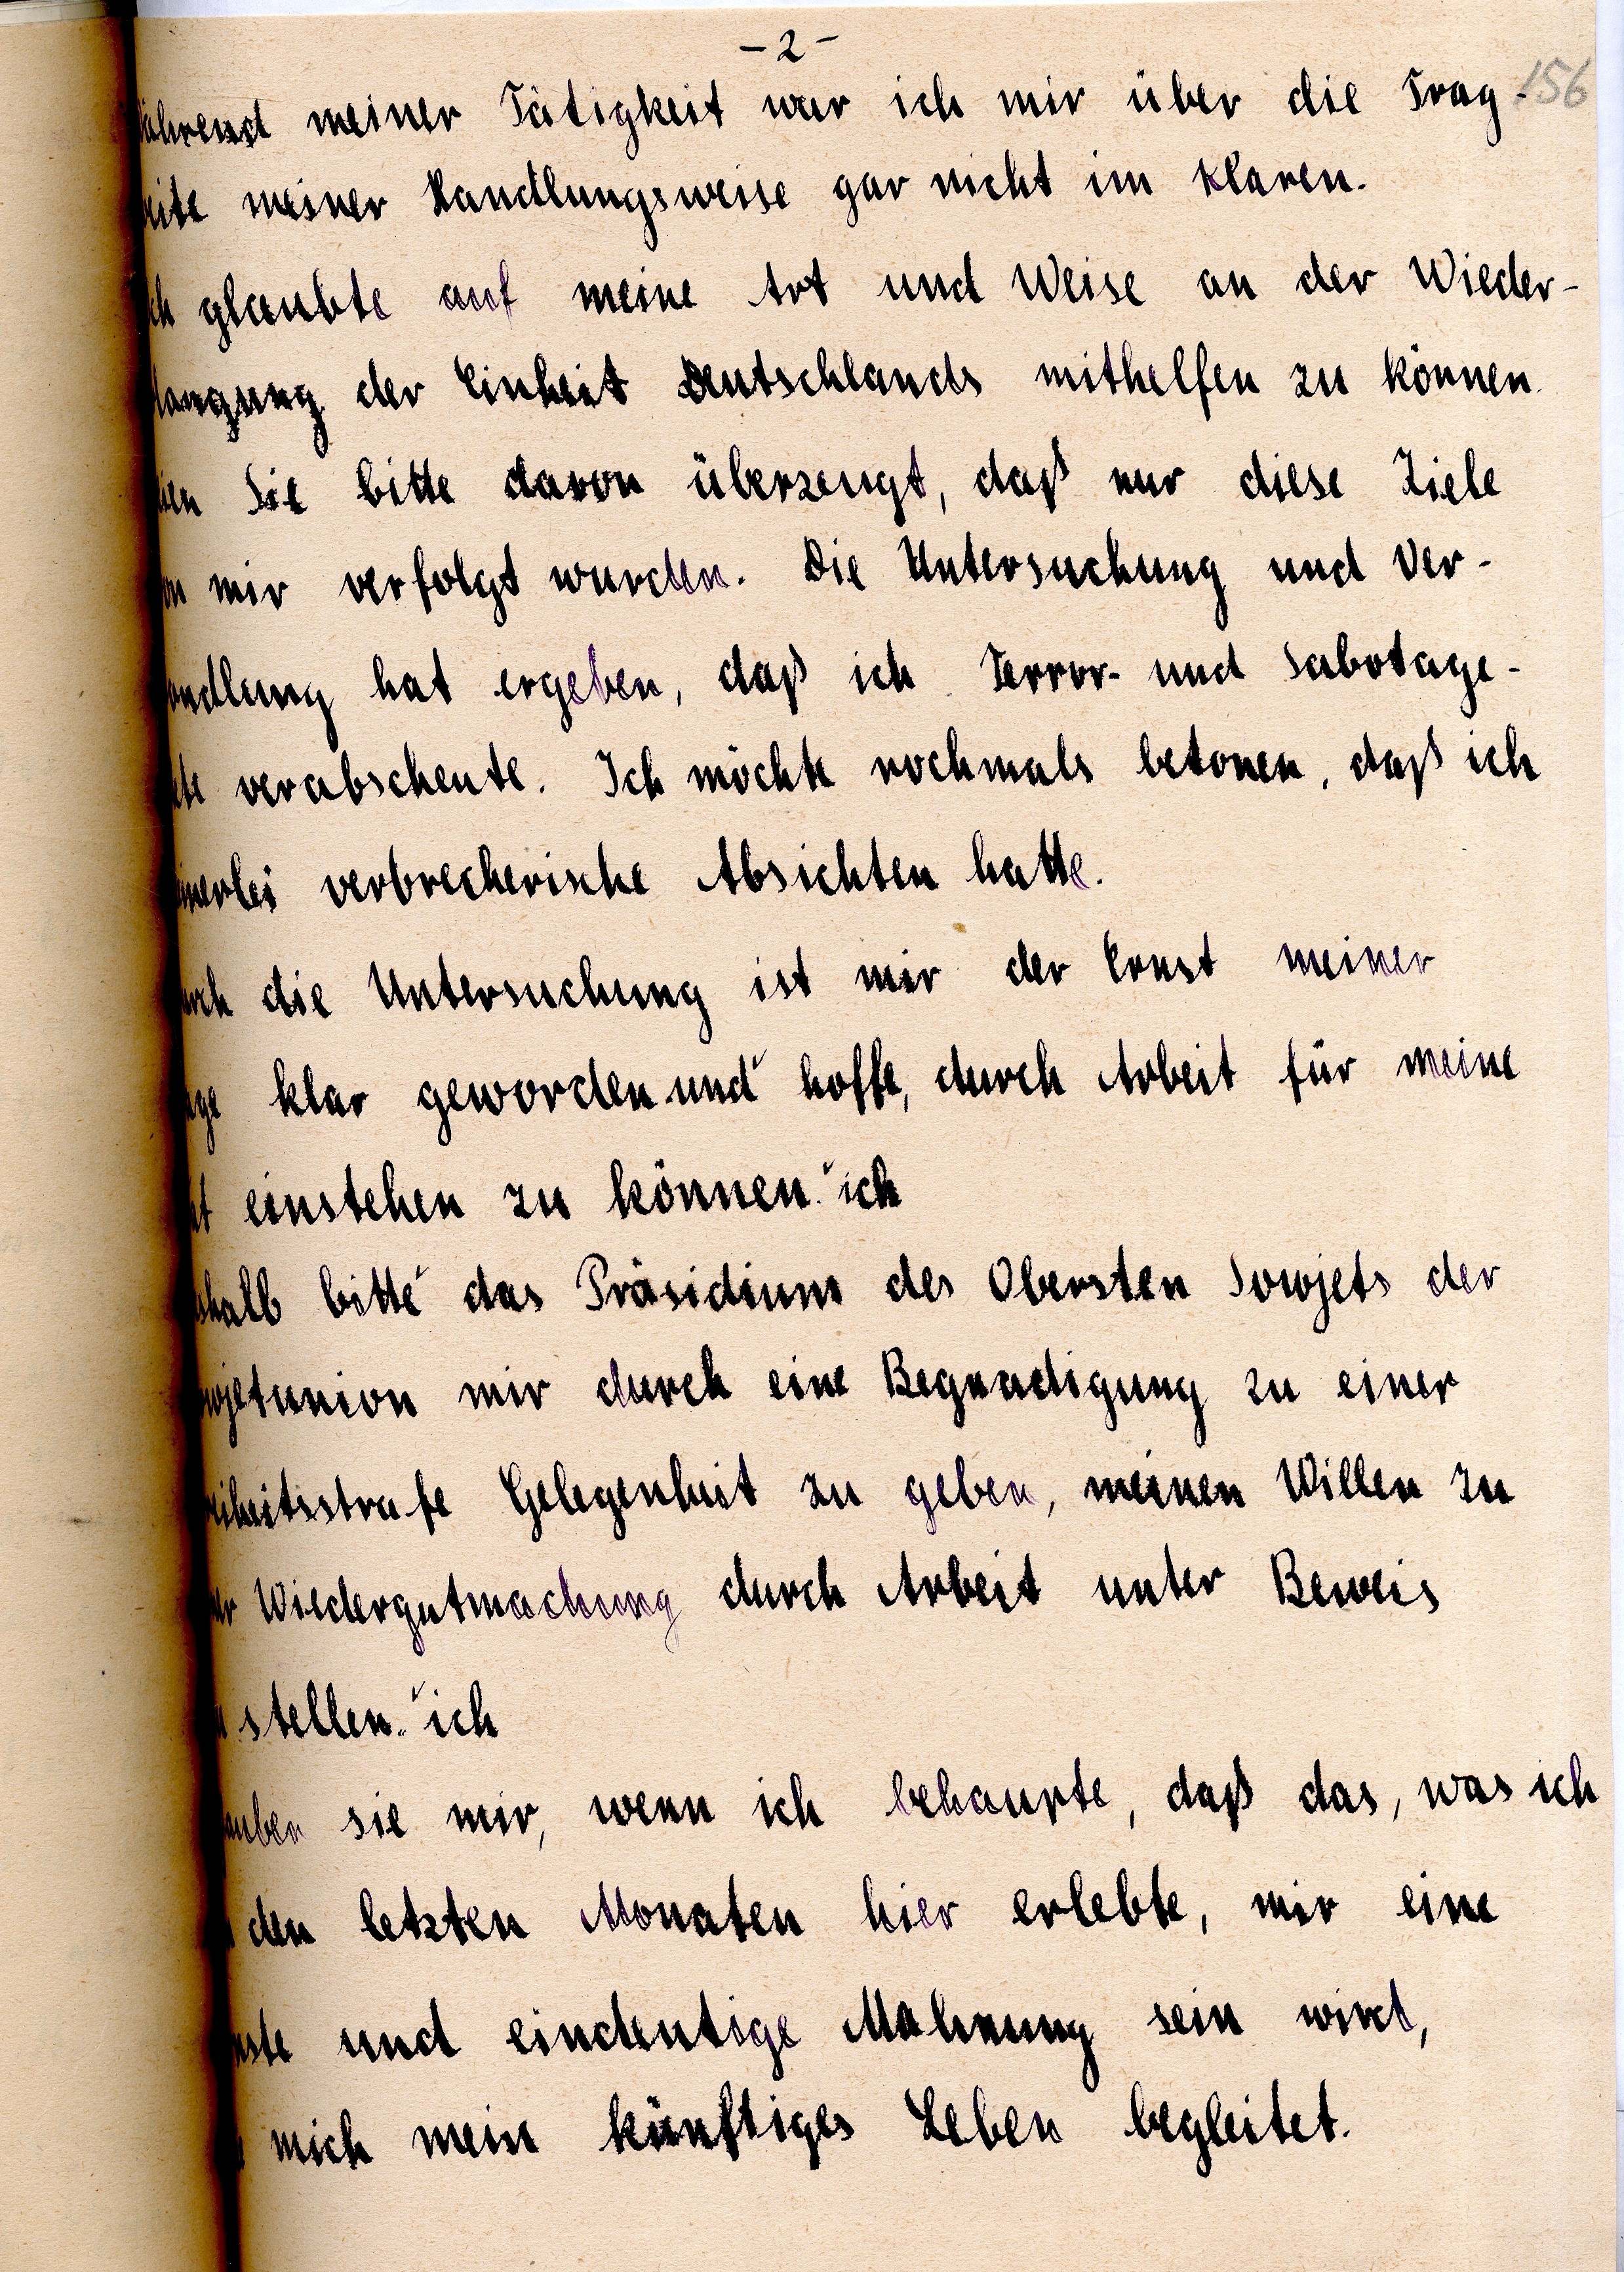 - 2 -
156
ährend meiner Tätigkeit war ich mir über die Trag-
eite meiner Handlungsweise gar nicht im klaren.
ch glaubte auf meine Art und Weise an der Wieder-
langung der Einheit Deutschlands mithelfen zu können.
ien Sie bitte davon überzeugt, daß nur diese Ziele
on mir verfolgt wurden. Die Untersuchung und Ver-
andlung hat ergeben, daß ich Terror- und Sabotage-
kte verabscheute. Ich möchte nochmals betonen, daß ich
inerlei verbrecherische Absichten hatte.
urch die Untersuchung ist mir der Ernst meiner
age klar geworden und hoffe, durch Arbeit für meine
at einstehen zu können. ich
shalb bitte das Präsidium des Obersten Sowjets der
owjetunion mir durch eine Begnadigung zu einer
eiheitsstrafe Gelegenheit zu geben, meinen Willen zu
er Wiedergutmachung durch Arbeit unter Beweis
u stellen. ich
auben sie mir, wenn ich behaupte, daß das, was ich
n den letzten Monaten hier erlebte, mir eine
nste und eindeutige Mahnung sein wird,
mich mein künftiges Leben begleitet.